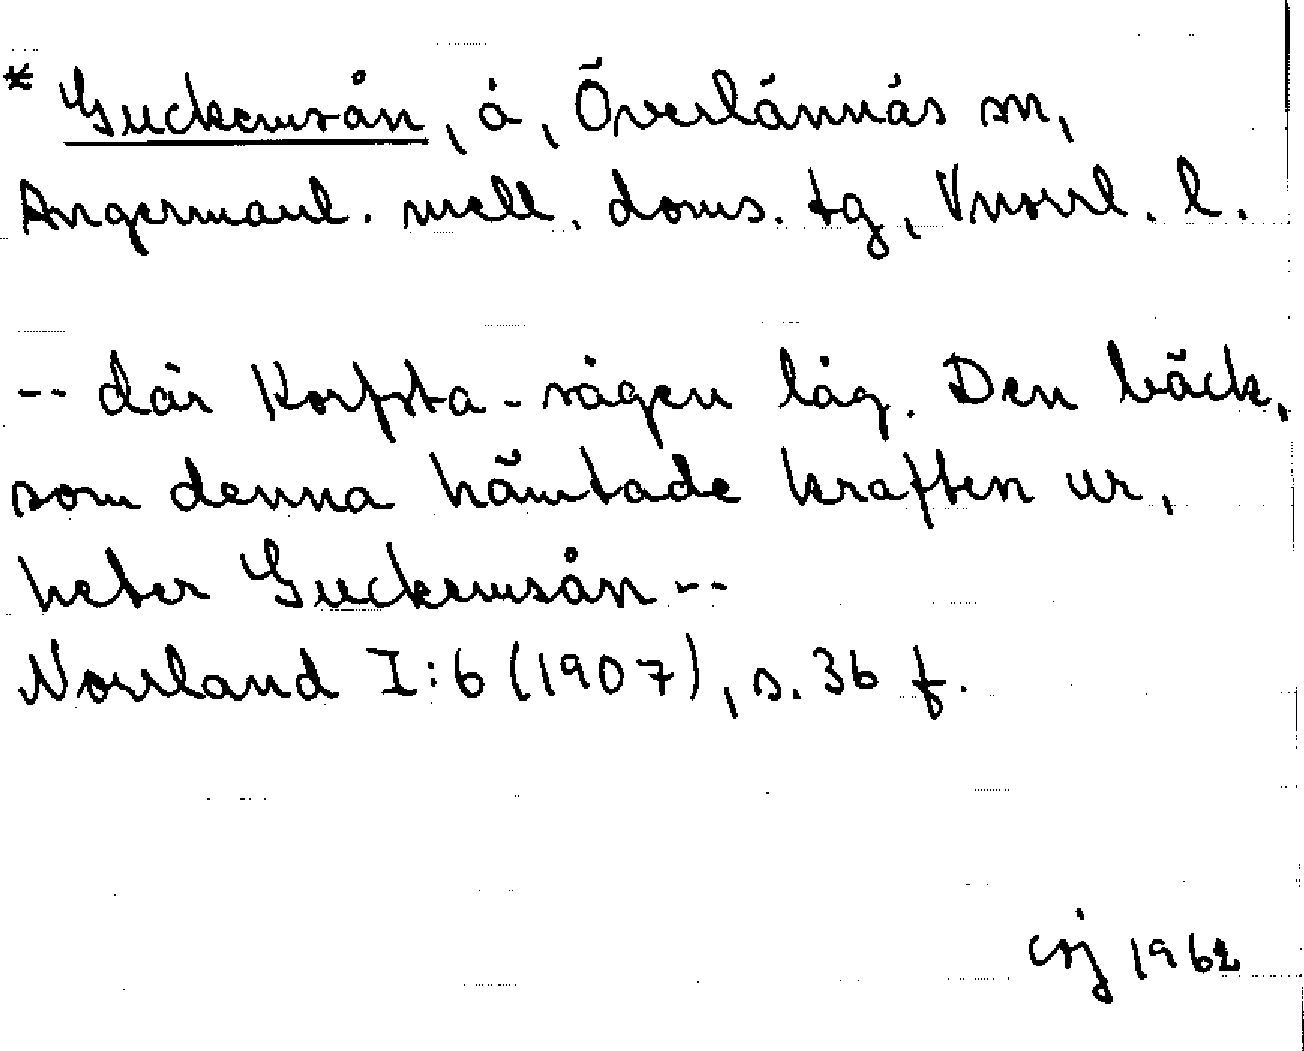 * Guckemsån, å, Överlännäs sn,
Ångermanl. mell. doms. tg, Vnorrl. l.
-- där Korpsta-sågen låg. Den bäck,
som denna hämtade kraften ur,
heter Guckemsån --
Norrland I:6 (1907), s. 36 f.
csj 1962